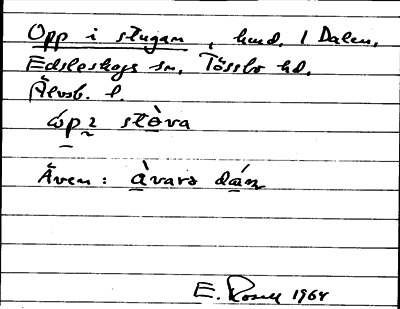 Opp i stugan, hmd. 1 Dalen,
Edsleskogs sn, Tössbo hd,
Älvsb. l.
stòva
Även: àvarɜ
E. Rosell 1964